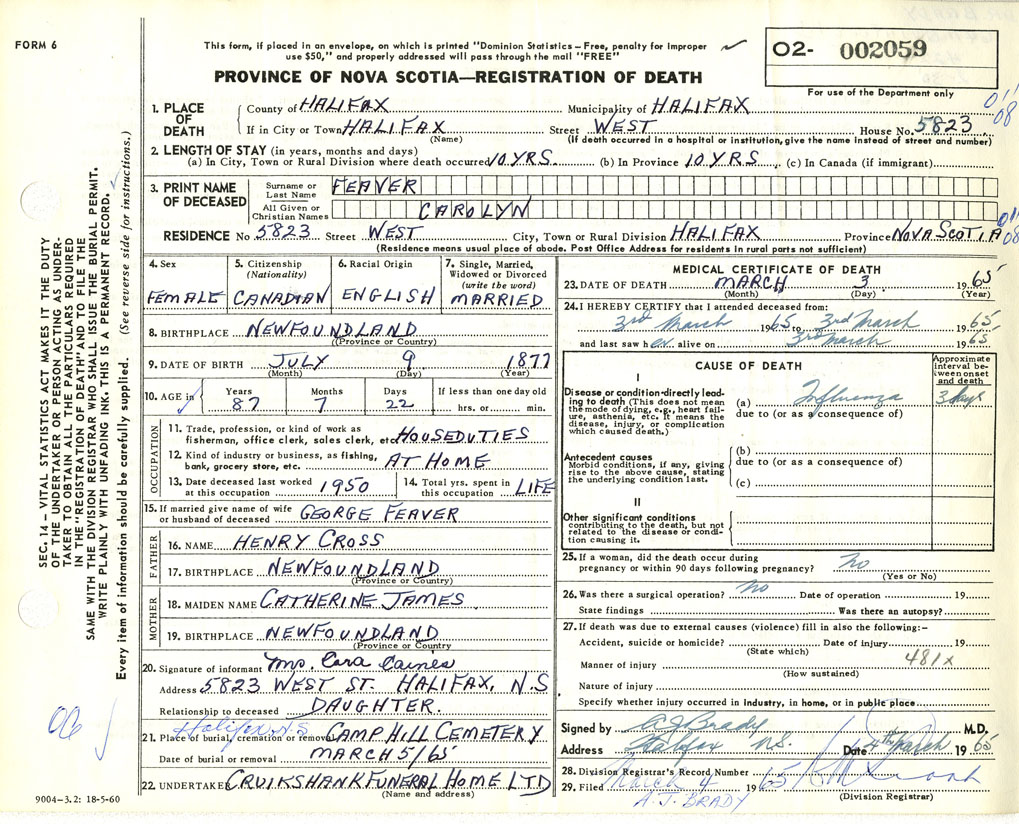 FORM 6
This form, if placed in an envelope, on which is printed "Dominion Statistics – Free, penalty for improper
use $50," and properly addressed will pass through the mail "FREE"
PROVINCE OF NOVA SCOTIA—REGISTRATION OF DEATH
O2- 002059
For use of the Department only
011
08
SEC. 14 – VITAL STATISTICS ACT MAKES IT THE DUTY
OF THE UNDERTAKER OR PERSON ACTING AS UNDER-
TAKER TO OBTAIN ALL THE PARTICULARS REQUIRED
IN THE "REGISTRATION OF DEATH" AND TO FILE THE
SAME WITH THE DIVISION REGISTRAR WHO SHALL ISSUE THE BURIAL PERMIT.
WRITE PLAINLY WITH UNFADING INK. THIS IS A PERMANENT RECORD.
Every item of information should be carefully supplied. (See reverse side for instructions.)
1. PLACE OF DEATH County of HALIFAX Municipality of HALIFAX
If in City or Town HALIFAX Street WEST House No. 5823
(Name) (If death occurred in a hospital or institution, give the name instead of street and number)
2. LENGTH OF STAY (in years, months and days)
(a) In City, Town or Rural Division where death occurred 10 YRS. (b) In Province 10 YRS. (c) In Canada (if immigrant)
3. PRINT NAME OF DECEASED Surname or Last Name FEAVER
All Given or Christian Names CAROLYN
RESIDENCE No 5823 Street WEST City, Town or Rural Division HALIFAX Province NOVA SCOTIA
(Residence means usual place of abode. Post Office Address for residents in rural parts not sufficient)
08
4. Sex FEMALE
5. Citizenship (Nationality) CANADIAN
6. Racial Origin ENGLISH
7. Single, Married, Widowed or Divorced (write the word) MARRIED
8. BIRTHPLACE NEWFOUNDLAND
(Province or Country)
9. DATE OF BIRTH JULY 9 1877
(Month) (Day) (Year)
10. AGE in Years 87 Months 7 Days 22 If less than one day old hrs. or min.
OCCUPATION
11. Trade, profession, or kind of work as
fisherman, office clerk, sales clerk, etc. HOUSEDUTIES
12. Kind of industry or business, as fishing,
bank, grocery store, etc. AT HOME
13. Date deceased last worked at this occupation 1950 14. Total yrs. spent in this occupation LIFE
15. If married give name of wife
or husband of deceased GEORGE FEAVER
FATHER
16. NAME HENRY CROSS
17. BIRTHPLACE NEWFOUNDLAND
(Province or Country)
MOTHER
18. MAIDEN NAME CATHERINE JAMES
19. BIRTHPLACE NEWFOUNDLAND
(Province or Country
20. Signature of informant Mrs. Cora Caines
Address 5823 WEST ST. HALIFAX, N.S
Relationship to deceased DAUGHTER.
Halifax N.S
21. Place of burial, cremation or removal CAMP HILL CEMETERY
Date of burial or removal MARCH 5/65
22. UNDERTAKER CRUIKSHANK FUNERAL HOME LTD
(Name and address)
9004–3.2: 18-5-60
MEDICAL CERTIFICATE OF DEATH
23. DATE OF DEATH MARCH 3 1965
(Month) (Day) (Year)
24. I HEREBY CERTIFY that I attended deceased from:
3rd March 1965 to 3rd March 1965
and last saw her alive on 3rd March 1965
CAUSE OF DEATH
Approximate interval between onset and death
I
Disease or condition directly lead-
ing to death (This does not mean
the mode of dying, e.g., heart fail-
ure, asthenia, etc. It means the
disease, injury, or complication
which caused death.)
(a) Influenza 3 days
due to (or as a consequence of)
Antecedent causes
Morbid conditions, if any, giving
rise to the above cause, stating
the underlying condition last.
(b)
due to (or as a consequence of)
(c)
II
Other significant conditions
contributing to the death, but not
related to the disease or condi-
tion causing it.
25. If a woman, did the death occur during
pregnancy or within 90 days following pregnancy? No
(Yes or No)
26. Was there a surgical operation? No Date of operation 19
State findings Was there an autopsy?
27. If death was due to external causes (violence) fill in also the following:–
Accident, suicide or homicide? Date of injury 19
(State which) 481x
Manner of injury
(How sustained)
Nature of injury
Specify whether injury occurred in industry, in home, or in public place
Signed by A J Brady M.D.
Address Halifax N.S. Date 4th March 1965
28. Division Registrar's Record Number
29. Filed March 4 1965
A. J. BRADY (Division Registrar)